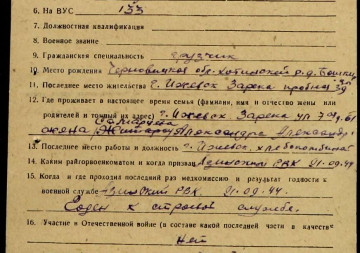 6. На ВУС 133
7. Должностная квалификация
8. Военное звание
9. Гражданская специальность грузчик
10. Место рождения Черновицкая обл. Хотинский р-н д.
11. Последнее место жительства г. Ижевск Зарека
12. Где проживает в настоящее время семья (фамилия, имя и отчество жены или
родителей и точный их адрес) г. Ижевск Зарека ул 7ая д. 61
жена Александра
13. Последнее место работы и должность г. Ижевск, хлебокомбинат
14. Каким райгорвоенкоматом и когда призван РВК 21.09.44
15. Когда и где проходил последний раз медкомиссию и результат годности к
военной службе РВК 21.09.44.
Годен к строевой службе.
16. Участие в Отечественной войне (в составе какой последней части в качестве
Нет